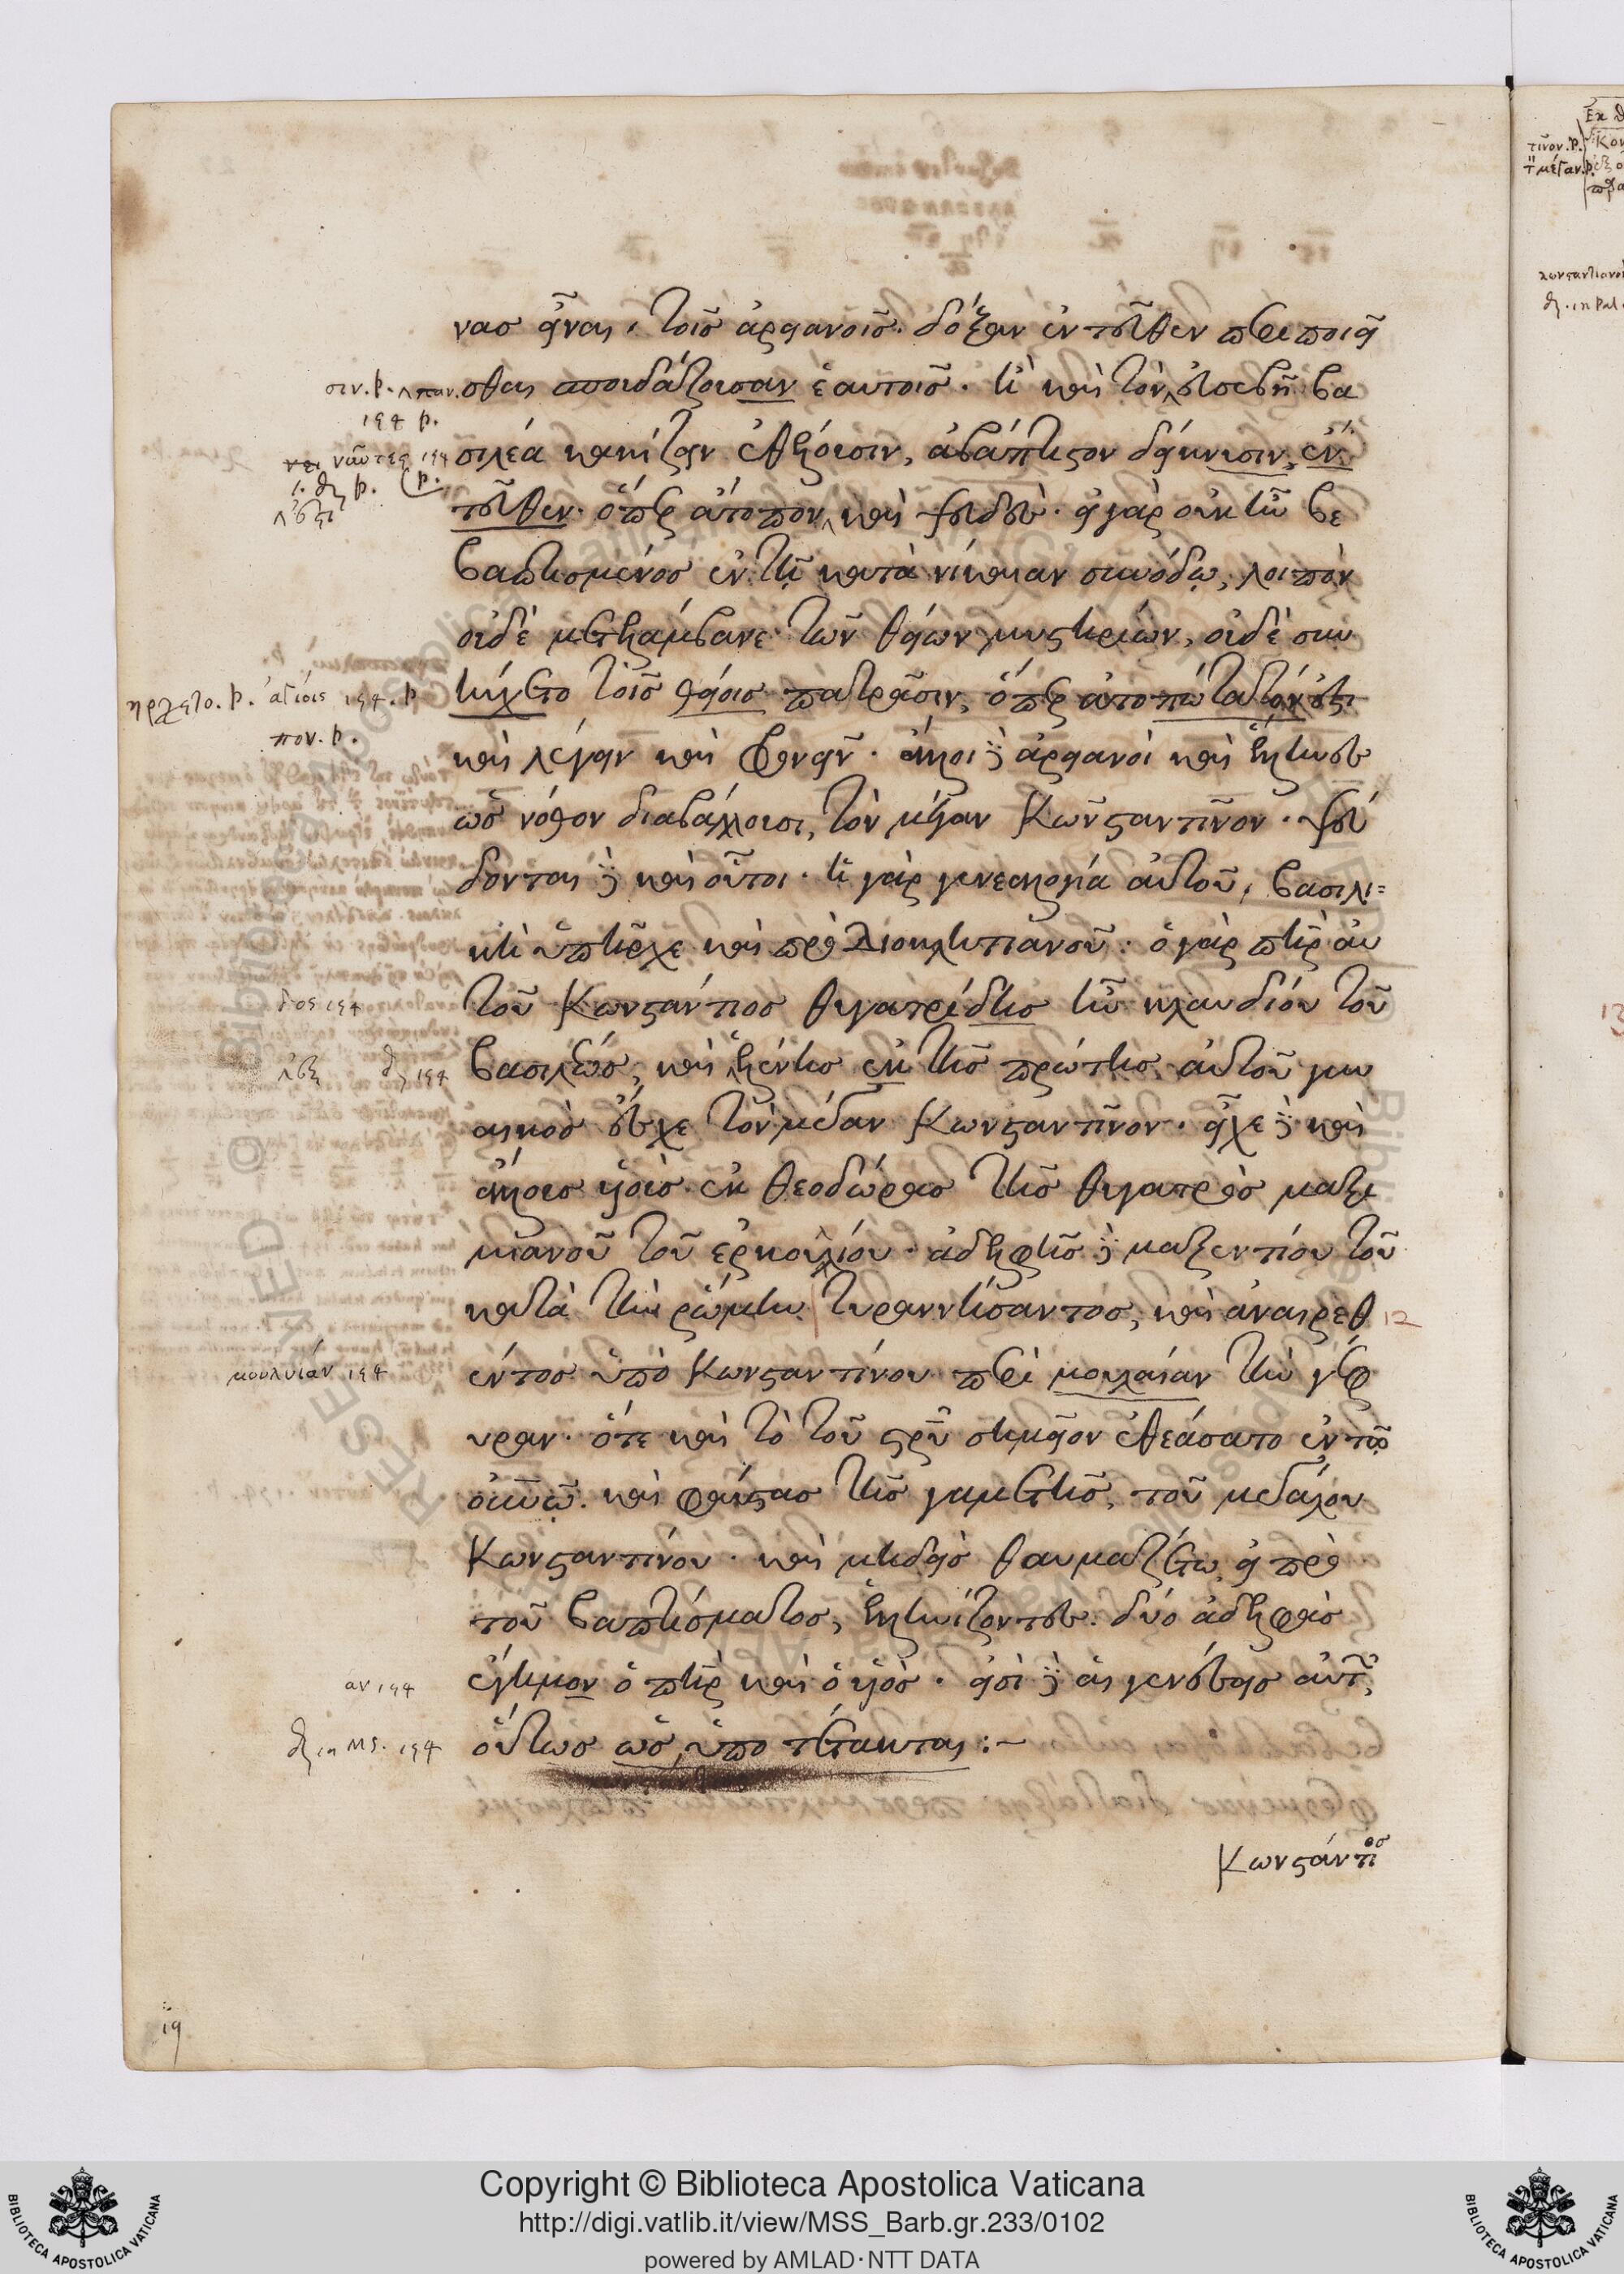 νας εἶναι, τοῖς ἀρειανοῖς. δόξαν ἐντεῦθεν περιποιεῖ
σθαι σπουδάζουσαν ἑαυτοῖς. ἢ καὶ τὸν εὐσεβῆ βα
σιλέα κακίζειν ἐθέλουσιν, ἀβάπτιστον δεικνύσιν, ἐν
τεῦθεν. ὅπερ ἄτοπον καὶ ψευδές. εἰ γὰρ οὐκ ἦν βε
βαπτισμένος ἐν τῇ κατὰ νίκαιαν συνόδῳ, λοιπὸν
οὐδὲ μετελάμβανε τῶν θείων μυστηρίων, οὐδὲ συν
ηύχετο τοῖς θείοις πατράσιν, ὅπερ ἀτοπώτατόν ἐστι
καὶ λέγειν καὶ φρονεῖν. ἄλλοι δὲ ἀρειανοὶ καὶ ἕλληνες
ὡς νόθον διαβάλλουσι, τὸν μέγαν Κωνσταντῖνον. ψεύ
δονται δὲ καὶ οὗτοι. ἡ γὰρ γενεαλογία αὐτοῦ, βασιλι=
κὴ ὑπῆρχε καὶ πρὸ Διοκλητιανοῦ. ὁ γὰρ πὴρ αὐ
τοῦ Κωνστάντιος θυγατρίδης ἦν κλαυδίου τοῦ
βασιλέως, καὶ ἑλένης ἐκ τῆς πρώτης αὐτοῦ γυν
αικὸς ἔσχε τὸν μέγαν Κωνσταντῖνον. εἶχε δὲ καὶ
ἄλλους υἱοὺς ἐκ θεοδώρας τῆς θυγατρὸς μαξι
μιανοῦ τοῦ ἑρκουλίου. ἀδελφῆς δὲ μαξεντίου τοῦ
κατὰ τὴν ῥώμην τυραννήσαντος, καὶ ἀναιρεθ 12
έντος ὑπὸ Κωνσταντίνου περὶ μουλαίαν τὴν γέφ
υραν. ὅτε καὶ τὸ τοῦ σρῦ σημεῖον ἐθεάσατο ἐν τῷ
οὐνῷ. καὶ φαύστας τῆς γαμετῆς, τοῦ μεγάλου
Κωνσταντίνου. καὶ μηδεὶς θαυμαζέτω, εἰ πρὸ
τοῦ βαπτίσματος, ἑλληνίζοντες δύο ἀδελφὰς
ἔγημον ὁ πὴρ καὶ ὁ υἱός. εἰσὶ δὲ αἱ γενέσεις αὐτῶν
οὕτως ὡς ὑποτέτακται:~
Κωνστάντιος
σιν. p. παν.
194 p.
ναῦτες 194
ηρχετο. p. ἁγίοις 194. p
πον. p.
δος 194
194
μουλυιάν 194
αν 194
in MS. 194
19
Copyright © Biblioteca Apostolica Vaticana
http://digi.vatlib.it/view/MSS_Barb.gr.233/0102
powered by AMLAD·NTT DATA
BIBLIOTECA APOSTOLICA VATICANA
BIBLIOTECA APOSTOLICA VATICANA